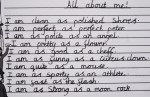 All about me!
I am clean as polished shoes.
I am perfect as perfect peter
I am polite as an angel.
I am pretty as a flower.
I am as good as a chef.
I am as funny as a citrus clown.
I am quite as a mouse
I am as sporty as an athlete.
I am as the
I am as strong as a moon rock